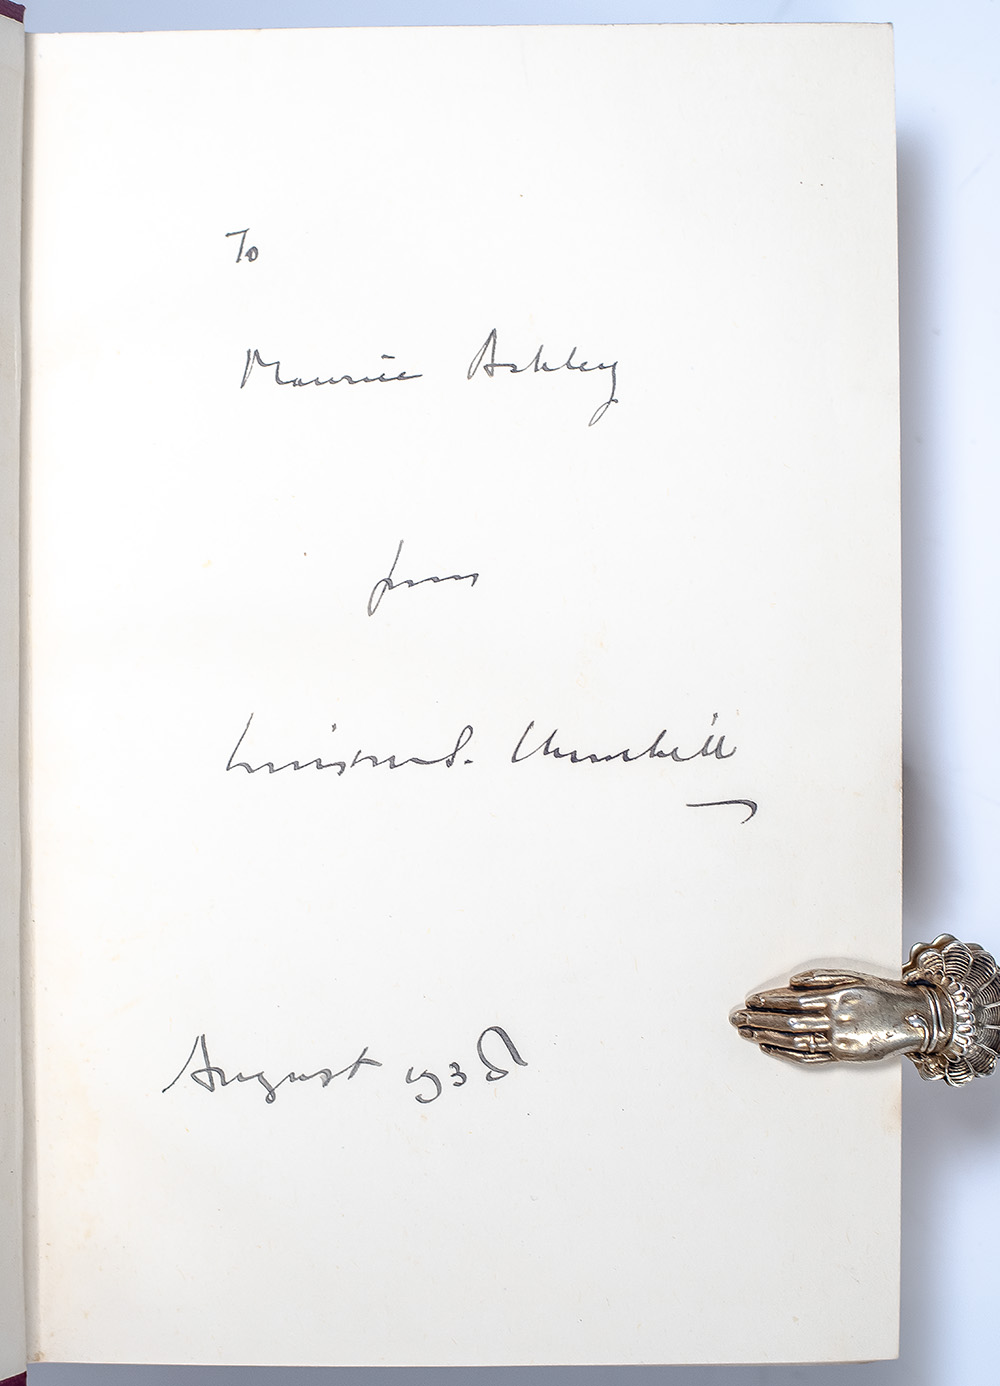 To
Maurice Ashley
from
Winston S. Churchill
August 1938